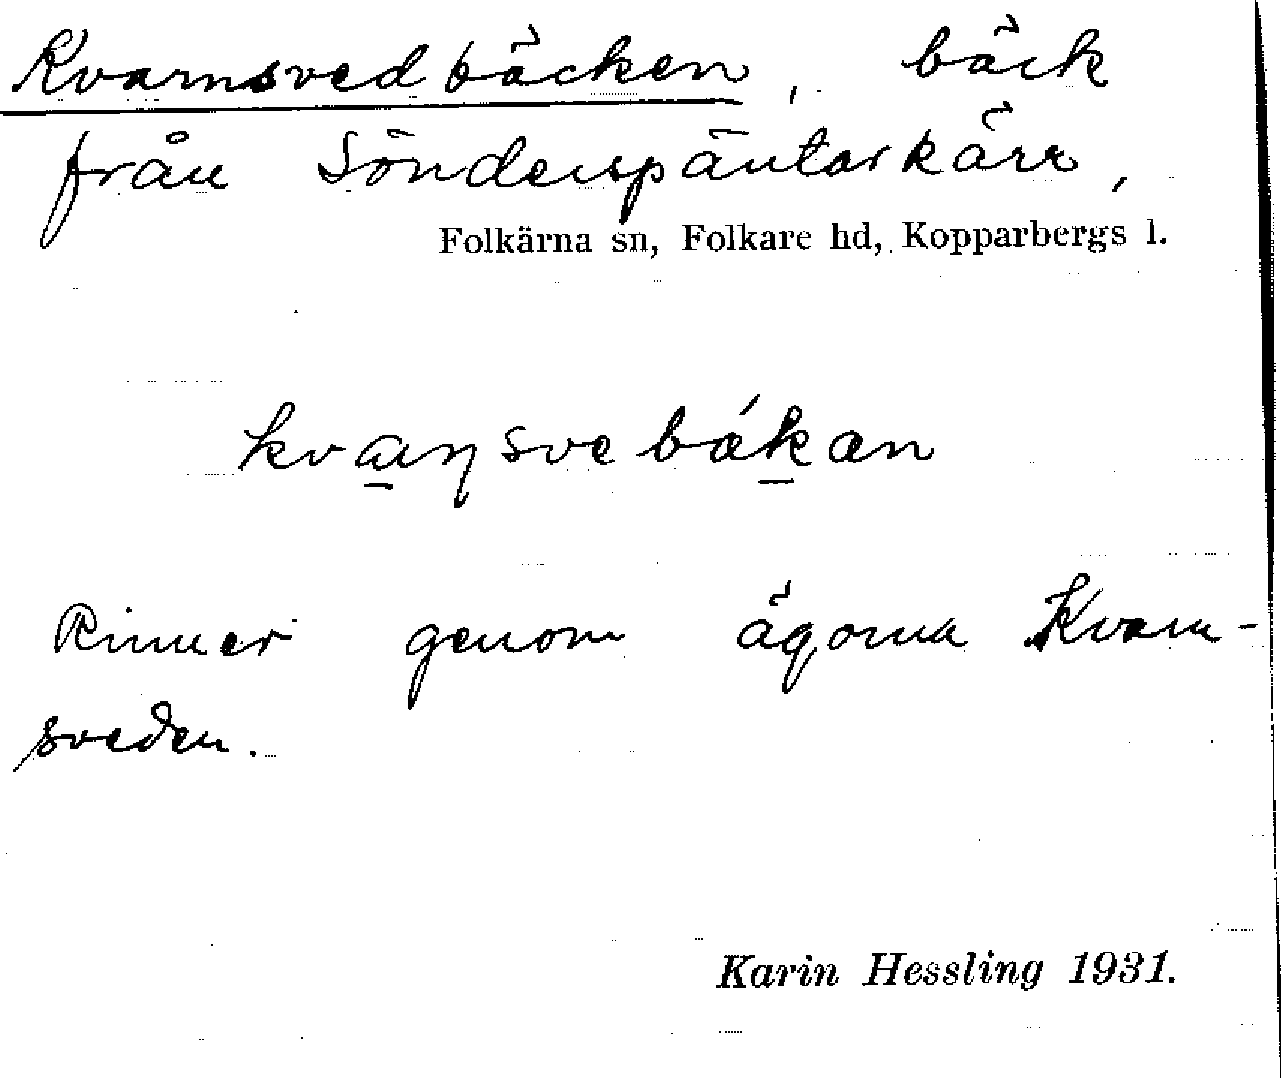 Kvarnsvedbäcken, bäck
från Sönderspäntarkärr,
Folkärna sn, Folkare hd, Kopparbergs l.
Rinner genom ägorna Kvarn-
sveden.
Karin Hessling 1931.